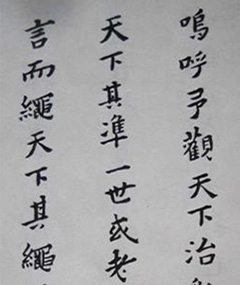 嗚呼予觀天下治
天下其準一世或老
言而繩天下其繩